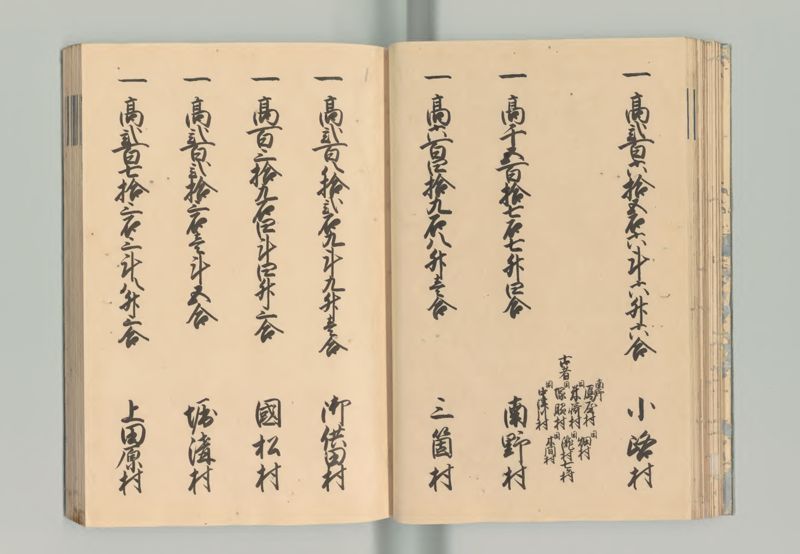 一 高弐百六拾五石六斗六升六合 小路村
一 高千五百拾七石七升四合 古者 南野村
一 高六百四拾九石八升壱合 三箇村
一 高弐百八拾弐石九斗九升壱合 御供田村
一 高百三拾九石四斗四升三合 國松村
一 高弐百弐拾三石壱斗五合 堀溝村
一 高弐百七拾三石三斗八升三合 上田原村